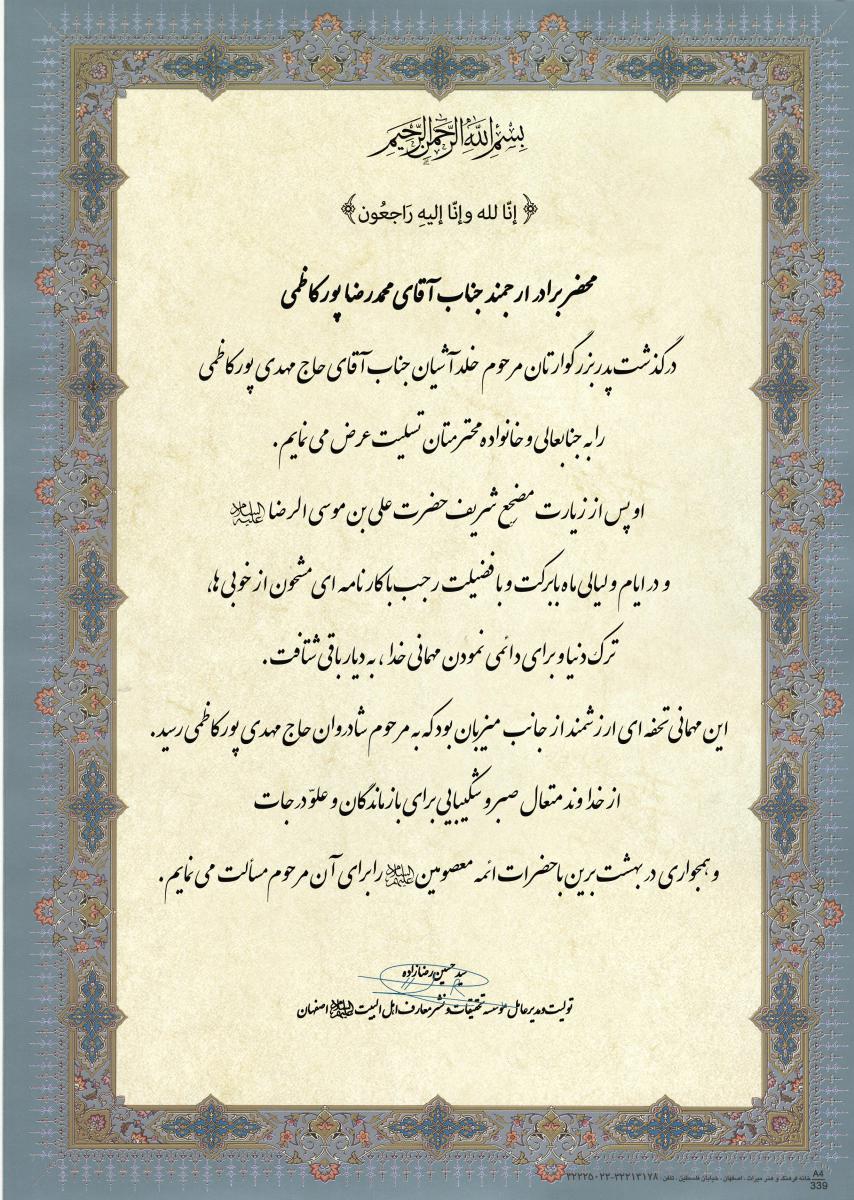 بسم الله الرحمن الرحیم
﴿ إنّا لله وإنّا إلیهِ رَاجعُون ﴾
محضر برادر ارجمند جناب آقای محمدرضا پورکاظمی
درگذشت پدر بزرگوارتان مرحوم خلد آشیان جناب آقای حاج مهدی پورکاظمی
را به جنابعالی و خانواده محترمتان تسلیت عرض می نمایم .
او پس از زیارت مضجع شریف حضرت علی بن موسی الرضا علیه السلام
و در ایام و لیالی ماه بابرکت و با فضیلت رجب با کارنامه ای مشحون از خوبی ها،
ترک دنیا و برای دائمی نمودن مهمانی خدا ، به دیار باقی شتافت .
این مهمانی تحفه ای ارزشمند از جانب میزبان بود که به مرحوم شادروان حاج مهدی پورکاظمی رسید .
از خداوند متعال صبر و شکیبایی برای بازماندگان و علوّ درجات
و همجواری در بهشت برین با حضرات ائمه معصومین علیهم السلام را برای آن مرحوم مسألت می نمایم .
سید حسین رضازاده
تولیت و مدیر عامل مؤسسه تحقیقات و نشر معارف اهل البیت علیهم السلام اصفهان
خانه فرهنگ و هنر میراث ، اصفهان ، خیابان فلسطین ، تلفن : ۳۲۲۱۳۱۷۸-۳۲۲۲۵۰۲۳
A4
339